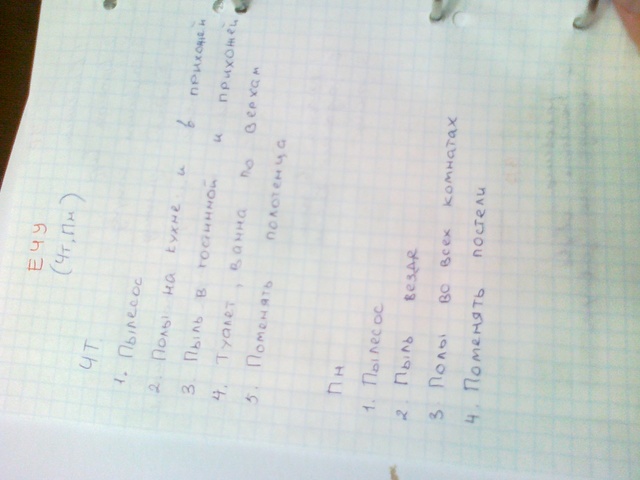 ЕЧУ
(Чт, Пн)
ЧТ
1. Пылесос
2. Полы на кухне и в прихожей
3 Пыль в гостинной и прихожей
4. Туалет, Ванна по верхам
5. Поменять полотенца
ПН
1. Пылесос
2. Пыль везде
3 Полы во всех комнатах
4. Поменять постели